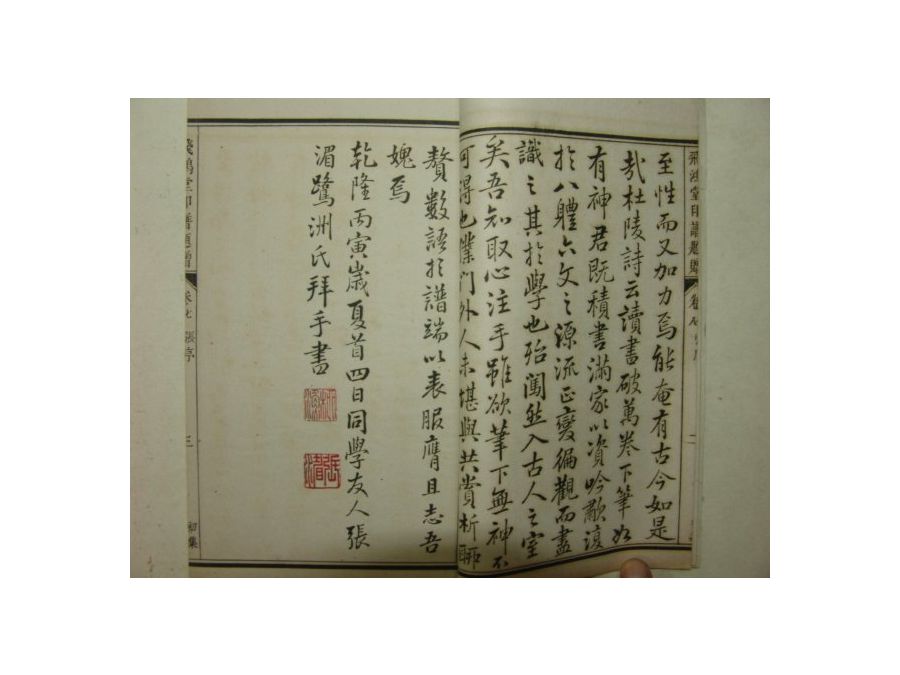 飛鴻堂印譜題
卷七
至性而又加力焉能奄有古今如是
哉杜陵詩云讀書破萬卷下筆如
有神君既積書滿家以資吟歗復
於八體六文之源流正變徧觀而盡
識之其於學也殆闖然入古人之室
矣吾知取心注手雖欲筆下無神不
可得也僕門外人未堪與共賞析聊
贅數語於譜端以表服膺且志吾
媿焉
乾隆丙寅歲夏首四日同學友人張
湄鷺洲氏拜手書
張湄
飛鴻堂印譜題
卷七
張序
三
初集